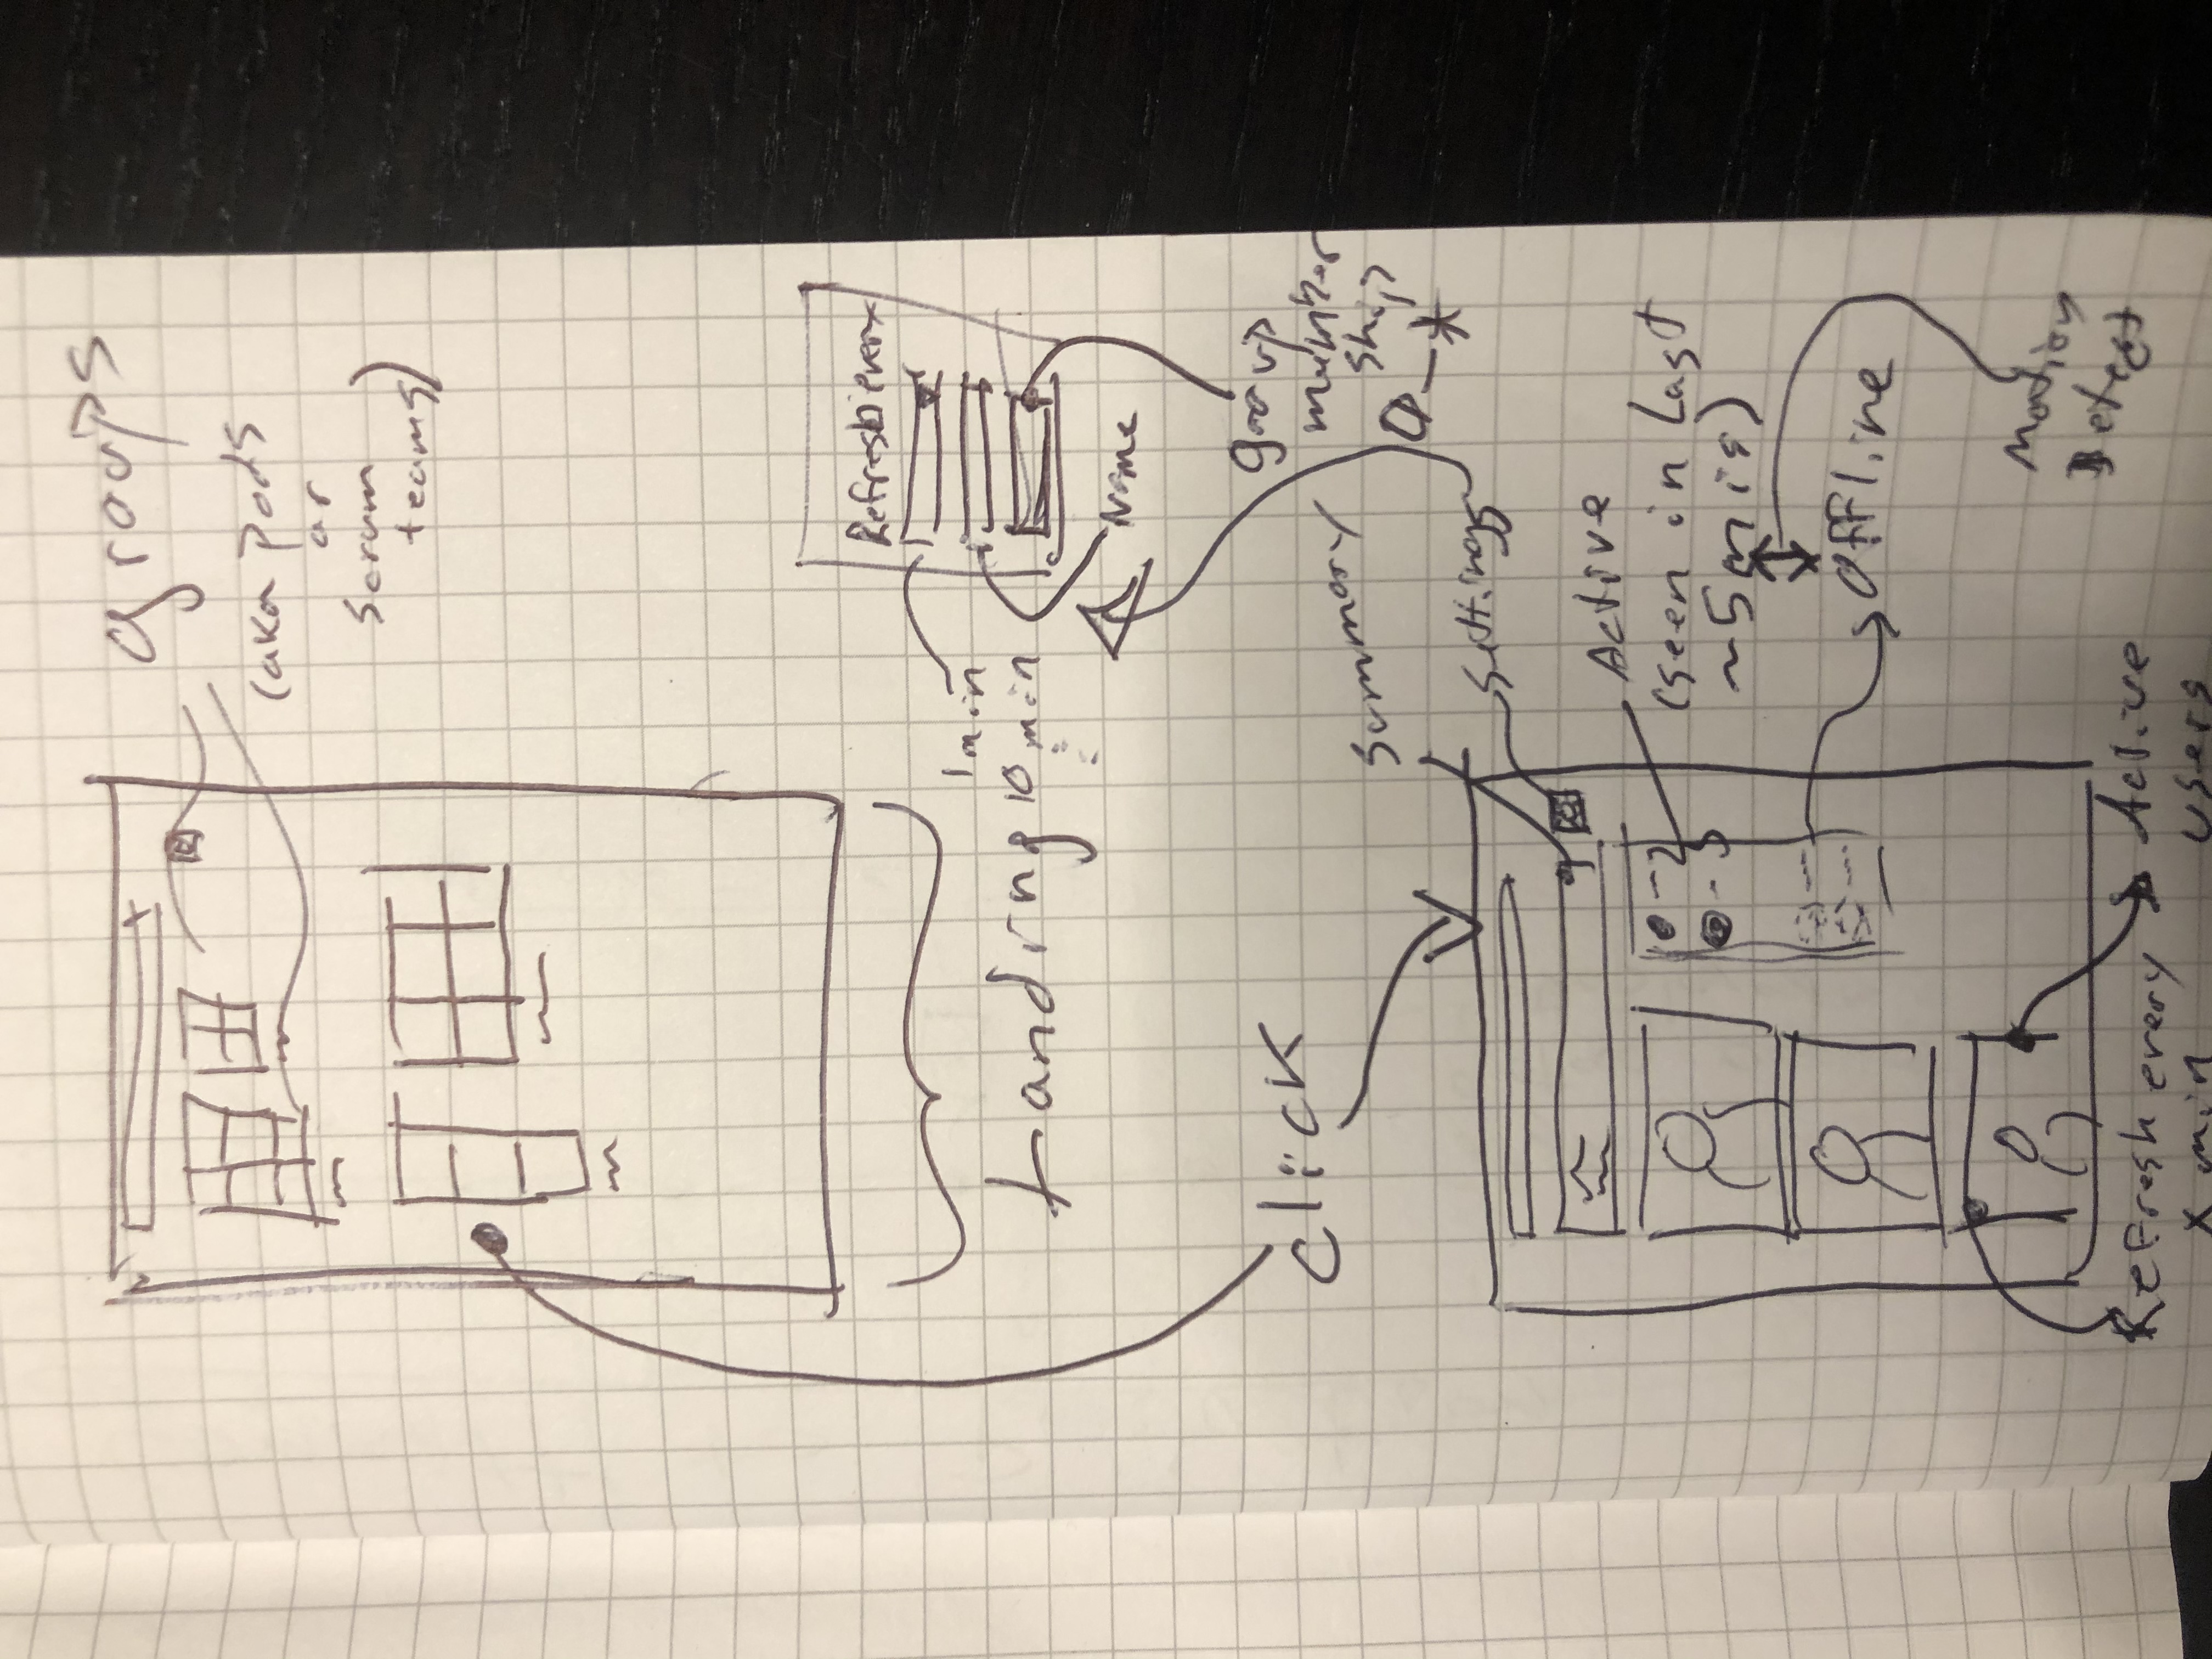 groups
(aka pods
or
scrum
teams)
Refresh every
1 min
10 min
Landing
Name
click
group
member
ship
0-*
Summary
Settings
Active
(seen in Last
~5 min)
-2
-3
Offline
Motion
Detect
Refresh every
x min
Active
users